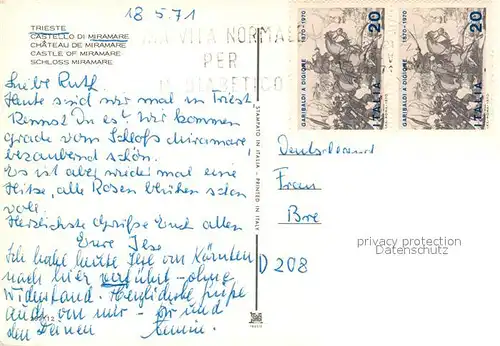 18.5.71
TRIESTE
CASTELLO DI MIRAMARE
CHÂTEAU DE MIRAMARE
CASTLE OF MIRAMARE
SCHLOSS MIRAMARE
VITA NORMALE
PER
DIABETICO
Liebe Ruth
Heute sind wir mal in Triest
Kennst Du es? Wir kommen
grade vom Schloß Miramare,
bezaubernd schön.
Es ist aber wieder mal eine
Hitze, alle Rosen blühen schon
voll.
Herzlichste Grüße Euch allen
Eure Ilse
Ich habe heute Ilse von Kärnten
nach hier verführt – ohne
Widerstand. Herzlichste Grüße
auch von mir – Dir und
den Deinen
STAMPATO IN ITALIA - PRINTED IN ITALY
GARIBALDI A DIGIONE 1870-1970
ITALIA 20
GARIBALDI A DIGIONE 1870-1970
ITALIA 20
Deutschland
Frau
Bre
D 208
privacy protection
Datenschutz